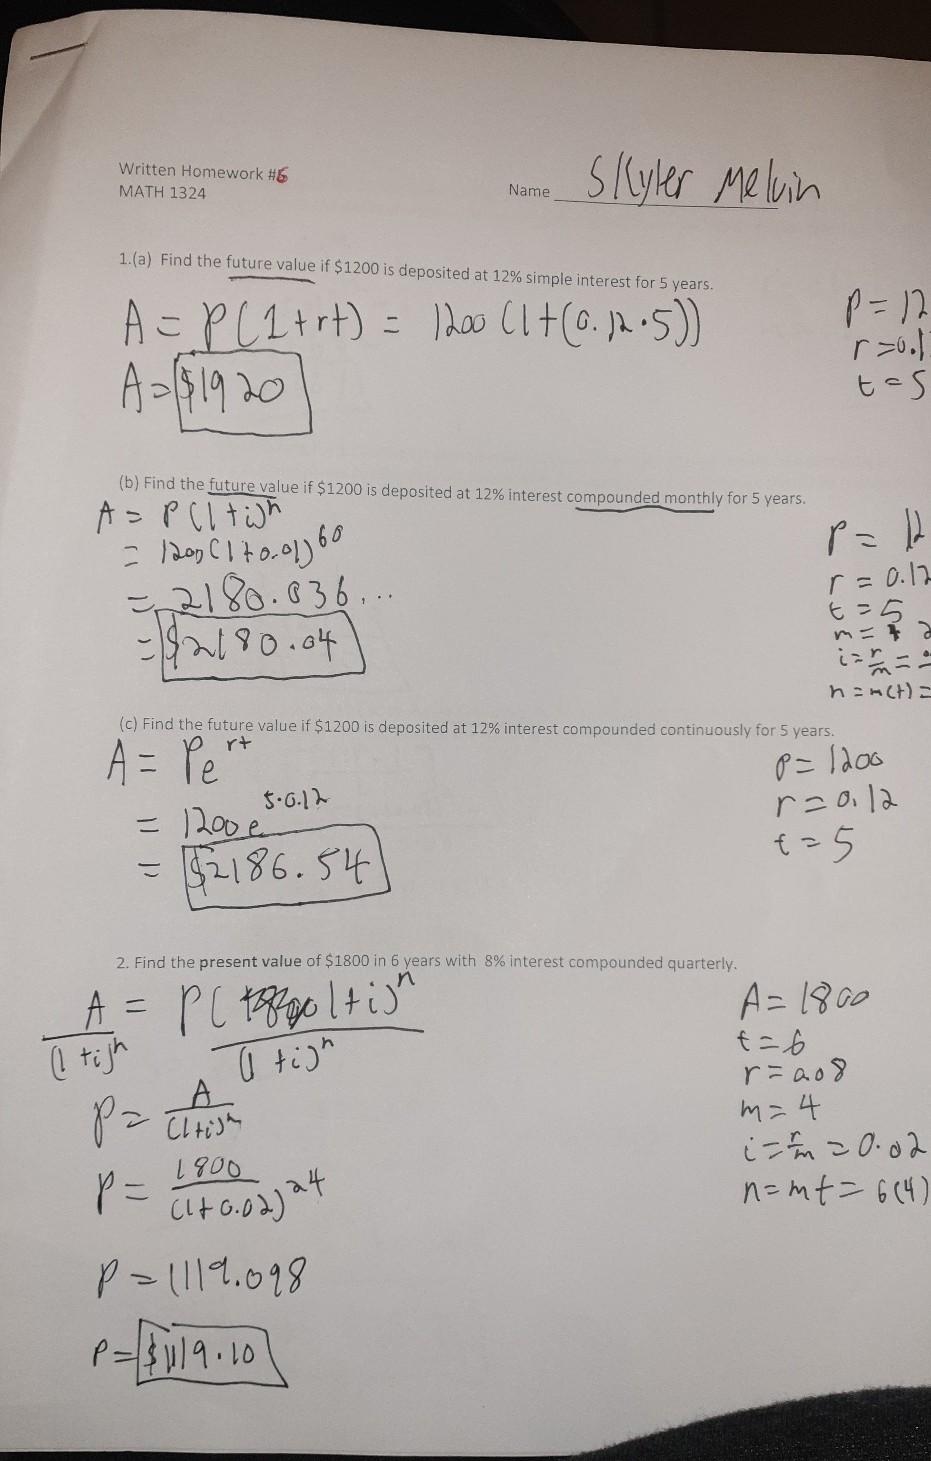 Written Homework #6
MATH 1324
Name Skyler Melvin
1.(a) Find the future value if $1200 is deposited at 12% simple interest for 5 years.
A = P(1+rt) = 1200 (1+(0.12·5))
A = $1920
P = 12
r = 0.1
t = 5
(b) Find the future value if $1200 is deposited at 12% interest compounded monthly for 5 years.
A = P(1+i)^n
= 1200(1+0.01)^60
= 2180.036...
= $2180.04
P = 12
r = 0.12
t = 5
m =
i = r/m =
n = m(t) =
(c) Find the future value if $1200 is deposited at 12% interest compounded continuously for 5 years.
A = Pe^rt
= 1200e^5·0.12
= $2186.54
P = 1200
r = 0.12
t = 5
2. Find the present value of $1800 in 6 years with 8% interest compounded quarterly.
A/(1+i)^n = P(1+i)^n/(1+i)^n
P = A/(1+i)^n
P = 1800/(1+0.02)^24
P = 1119.098
P = $1119.10
A = 1800
t = 6
r = 0.08
m = 4
i = r/m = 0.02
n = mt = 6(4)